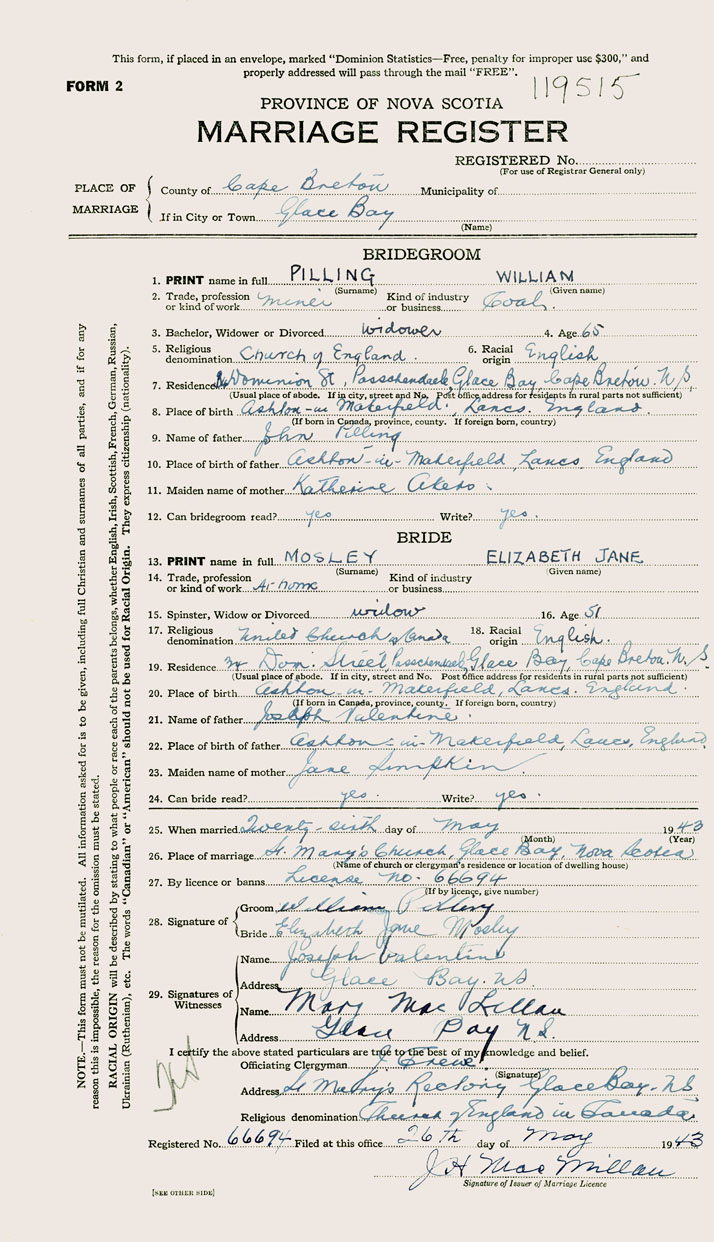 This form, if placed in an envelope, marked "Dominion Statistics—Free, penalty for improper use $300," and
properly addressed will pass through the mail "FREE".
FORM 2
119515
PROVINCE OF NOVA SCOTIA
MARRIAGE REGISTER
REGISTERED No.
(For use of Registrar General only)
PLACE OF MARRIAGE
County of Cape Breton Municipality of
If in City or Town Glace Bay
(Name)
BRIDEGROOM
1. PRINT name in full PILLING WILLIAM
(Surname) (Given name)
2. Trade, profession or kind of work miner Kind of industry or business Coal
3. Bachelor, Widower or Divorced widower 4. Age 65
5. Religious denomination Church of England 6. Racial origin English
7. Residence Dominion St, Passchendaele, Glace Bay, Cape Breton. N.S.
(Usual place of abode. If in city, street and No. Post office address for residents in rural parts not sufficient)
8. Place of birth Ashton-in Makerfield. Lancs. England.
(If born in Canada, province, county. If foreign born, country)
9. Name of father John Pilling
10. Place of father Ashton-in-Makerfield, Lancs. England
11. Maiden name of mother Katherine Akers
12. Can bridegroom read? yes Write? yes.
BRIDE
13. PRINT name in full MOSLEY ELIZABETH JANE
(Surname) (Given name)
14. Trade, profession or kind of work At home Kind of industry or business
15. Spinster, Widow or Divorced widow 16. Age 51
17. Religious denomination United Church of Canada 18. Racial origin English.
19. Residence Dom. Street, Passchendaele, Glace Bay, Cape Breton. N.S.
(Usual place of abode. If in city, street and No. Post office address for residents in rural parts not sufficient)
20. Place of birth Ashton-in-Makerfield, Lancs. England.
(If born in Canada, province, county. If foreign born, country)
21. Name of father Joseph Valentine.
22. Place of birth of father Ashton-in-Makerfield, Lancs, England
23. Maiden name of mother Jane Simpkin
24. Can bride read? yes. Write? yes.
25. When married Twenty-sixth day of May 1943
(Month) (Year)
26. Place of marriage St. Mary's Church, Glace Bay, Nova Scotia
(Name of church or clergyman's residence or location of dwelling house)
27. By licence or banns License No. 66694
(If by licence, give number)
28. Signature of
Groom William Pilling
Bride Elizabeth Jane Mosley
29. Signatures of Witnesses
Name Joseph Valentine
Address Glace Bay. NS
Name Mary MacLellan
Address Glace Bay N.S.
I certify the above stated particulars are true to the best of my knowledge and belief.
Officiating Clergyman
(Signature)
Address St Mary's Rectory Glace Bay. NS
Religious denomination Church of England in Canada
Registered No. 66694 Filed at this office 26th day of May 1943
J H MacMillan
Signature of Issuer of Marriage Licence
[SEE OTHER SIDE]
NOTE.—This form must not be mutilated. All information asked for is to be given, including full Christian and surnames of all parties, and if for any
reason this is impossible, the reason for the omission must be stated.
RACIAL ORIGIN will be described by stating to what people or race each of the parents belongs, whether English, Irish, Scottish, French, German, Russian,
Ukrainian (Ruthenian), etc. The words "Canadian" or "American" should not be used for Racial Origin. They express citizenship (nationality).